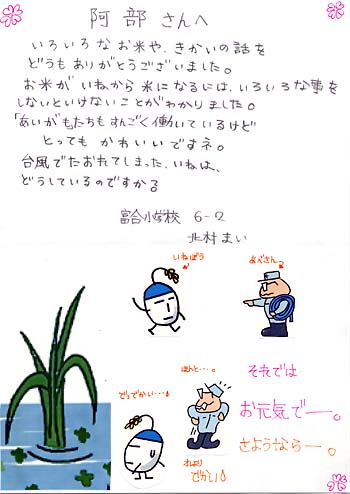 阿部さんへ
いろいろなお米や、きかいの話を
どうもありがとうございました。
お米がいねから米になるには、いろいろな事を
しないといけないことがわかりました。
「あいがも」たちもすんごく働いているけど
とってもかわいいですネ。
台風でたおれてしまった、いねは、
どうしているのですか?
富合小学校 6-2
北村まい
いねぼう
あべさん
ほんと…。
でってかい…
おれより
でかい
それでは
お元気でー。
さようならー。